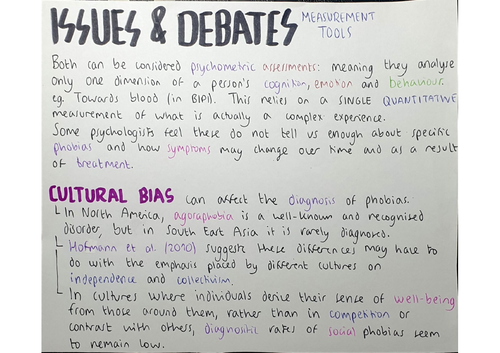 ISSUES & DEBATES MEASUREMENT TOOLS
Both can be considered psychometric assessments: meaning they analyse
only one dimension of a person's cognition, emotion and behaviour.
eg. Towards blood (in BIPI). This relies on a SINGLE QUANTITATIVE
measurement of what is actually a complex experience.
Some psychologists feel these do not tell us enough about specific
phobias and how symptoms may change over time and as a result
of treatment.
CULTURAL BIAS can affect the diagnosis of phobias.
In North America, agoraphobia is a well-known and recognised
disorder, but in South East Asia it is rarely diagnosed.
Hofmann et al. (2010) suggests these differences may have to
do with the emphasis placed by different cultures on
independence and collectivism.
In cultures where individuals derive their sense of well-being
from those around them, rather than in competition or
contrast with others, diagnositic rates of social phobias seem
to remain low.